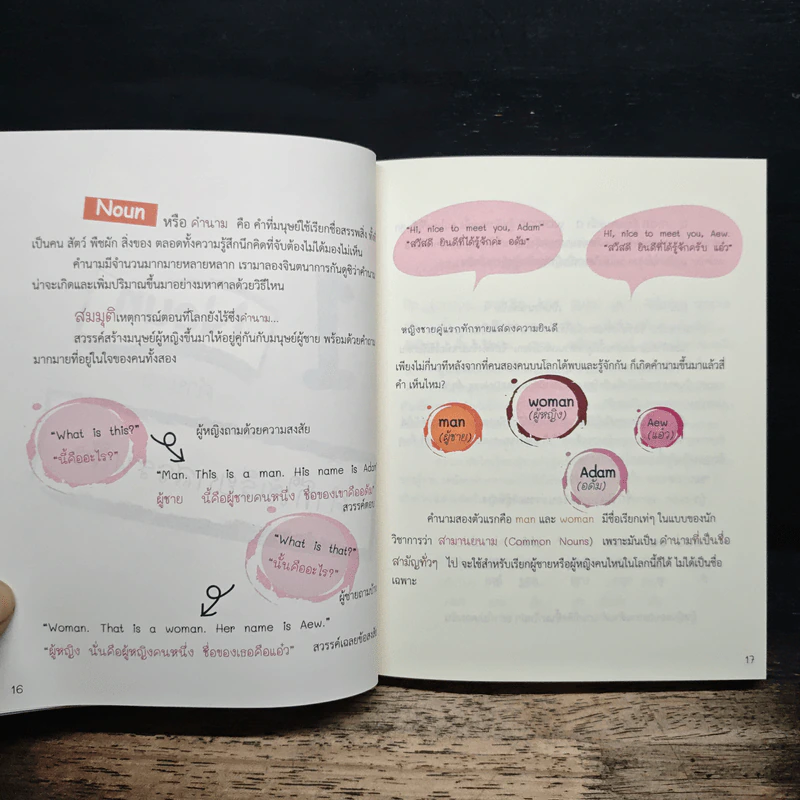 Noun หรือ คำนาม คือ คำที่มนุษย์ใช้เรียกชื่อสรรพสิ่ง
เป็นคน สัตว์ พืชผัก สิ่งของ ตลอดทั้งความรู้สึกนึกคิดที่จับต้องไม่ได้มองไม่เห็น
คำนามมีจำนวนมากมายหลายหลาก เรามาลองจินตนาการกันดูซิว่าคำนาม
น่าจะเกิดและเพิ่มปริมาณขึ้นมาอย่างมหาศาลด้วยวิธีไหน
สมมุติเหตุการณ์ตอนที่โลกยังไร้ซึ่งคำนาม...
สวรรค์สร้างมนุษย์ผู้หญิงขึ้นมาให้อยู่คู่กันกับมนุษย์ผู้ชาย พร้อมด้วยคำถาม
มากมายที่อยู่ในใจของคนทั้งสอง
"What is this?"
"นี้คืออะไร?"
ผู้หญิงถามด้วยความสงสัย
"Man. This is a man. His name is Adam
ผู้ชาย นี้คือผู้ชายคนหนึ่ง ชื่อของเขาคืออดัม"
สวรรค์ตอบ
"What is that?"
"นั้นคืออะไร?"
ผู้ชายถาม
"Woman. That is a woman. Her name is Aew."
"ผู้หญิง นั่นคือผู้หญิงคนหนึ่ง ชื่อของเธอคือแอ๋ว"
สวรรค์เฉลยข้อสงสัย
16
"Hi, nice to meet you, Adam"
"สวัสดี ยินดีที่ได้รู้จักค่ะ อดัม"
Hi, nice to meet you, Aew.
"สวัสดี ยินดีที่ได้รู้จักครับ แอ๋ว"
หญิงชายคู่แรกทักทายแสดงความยินดี
เพียงไม่กี่นาทีหลังจากที่คนสองคนบนโลกได้พบและรู้จักกัน ก็เกิดคำนามขึ้นมาแล้วสี่
คำ เห็นไหม?
man
(ผู้ชาย)
woman
(ผู้หญิง)
Aew
(แอ๋ว)
Adam
(อดัม)
คำนามสองตัวแรกคือ man และ woman มีชื่อเรียกเท่ๆ ในแบบของนัก
วิชาการว่า สามานยนาม (Common Nouns) เพราะมันเป็น คำนามที่เป็นชื่อ
สามัญทั่วๆ ไป จะใช้สำหรับเรียกผู้ชายหรือผู้หญิงคนไหนในโลกนี้ก็ได้ ไม่ได้เป็นชื่อ
เฉพาะ
17